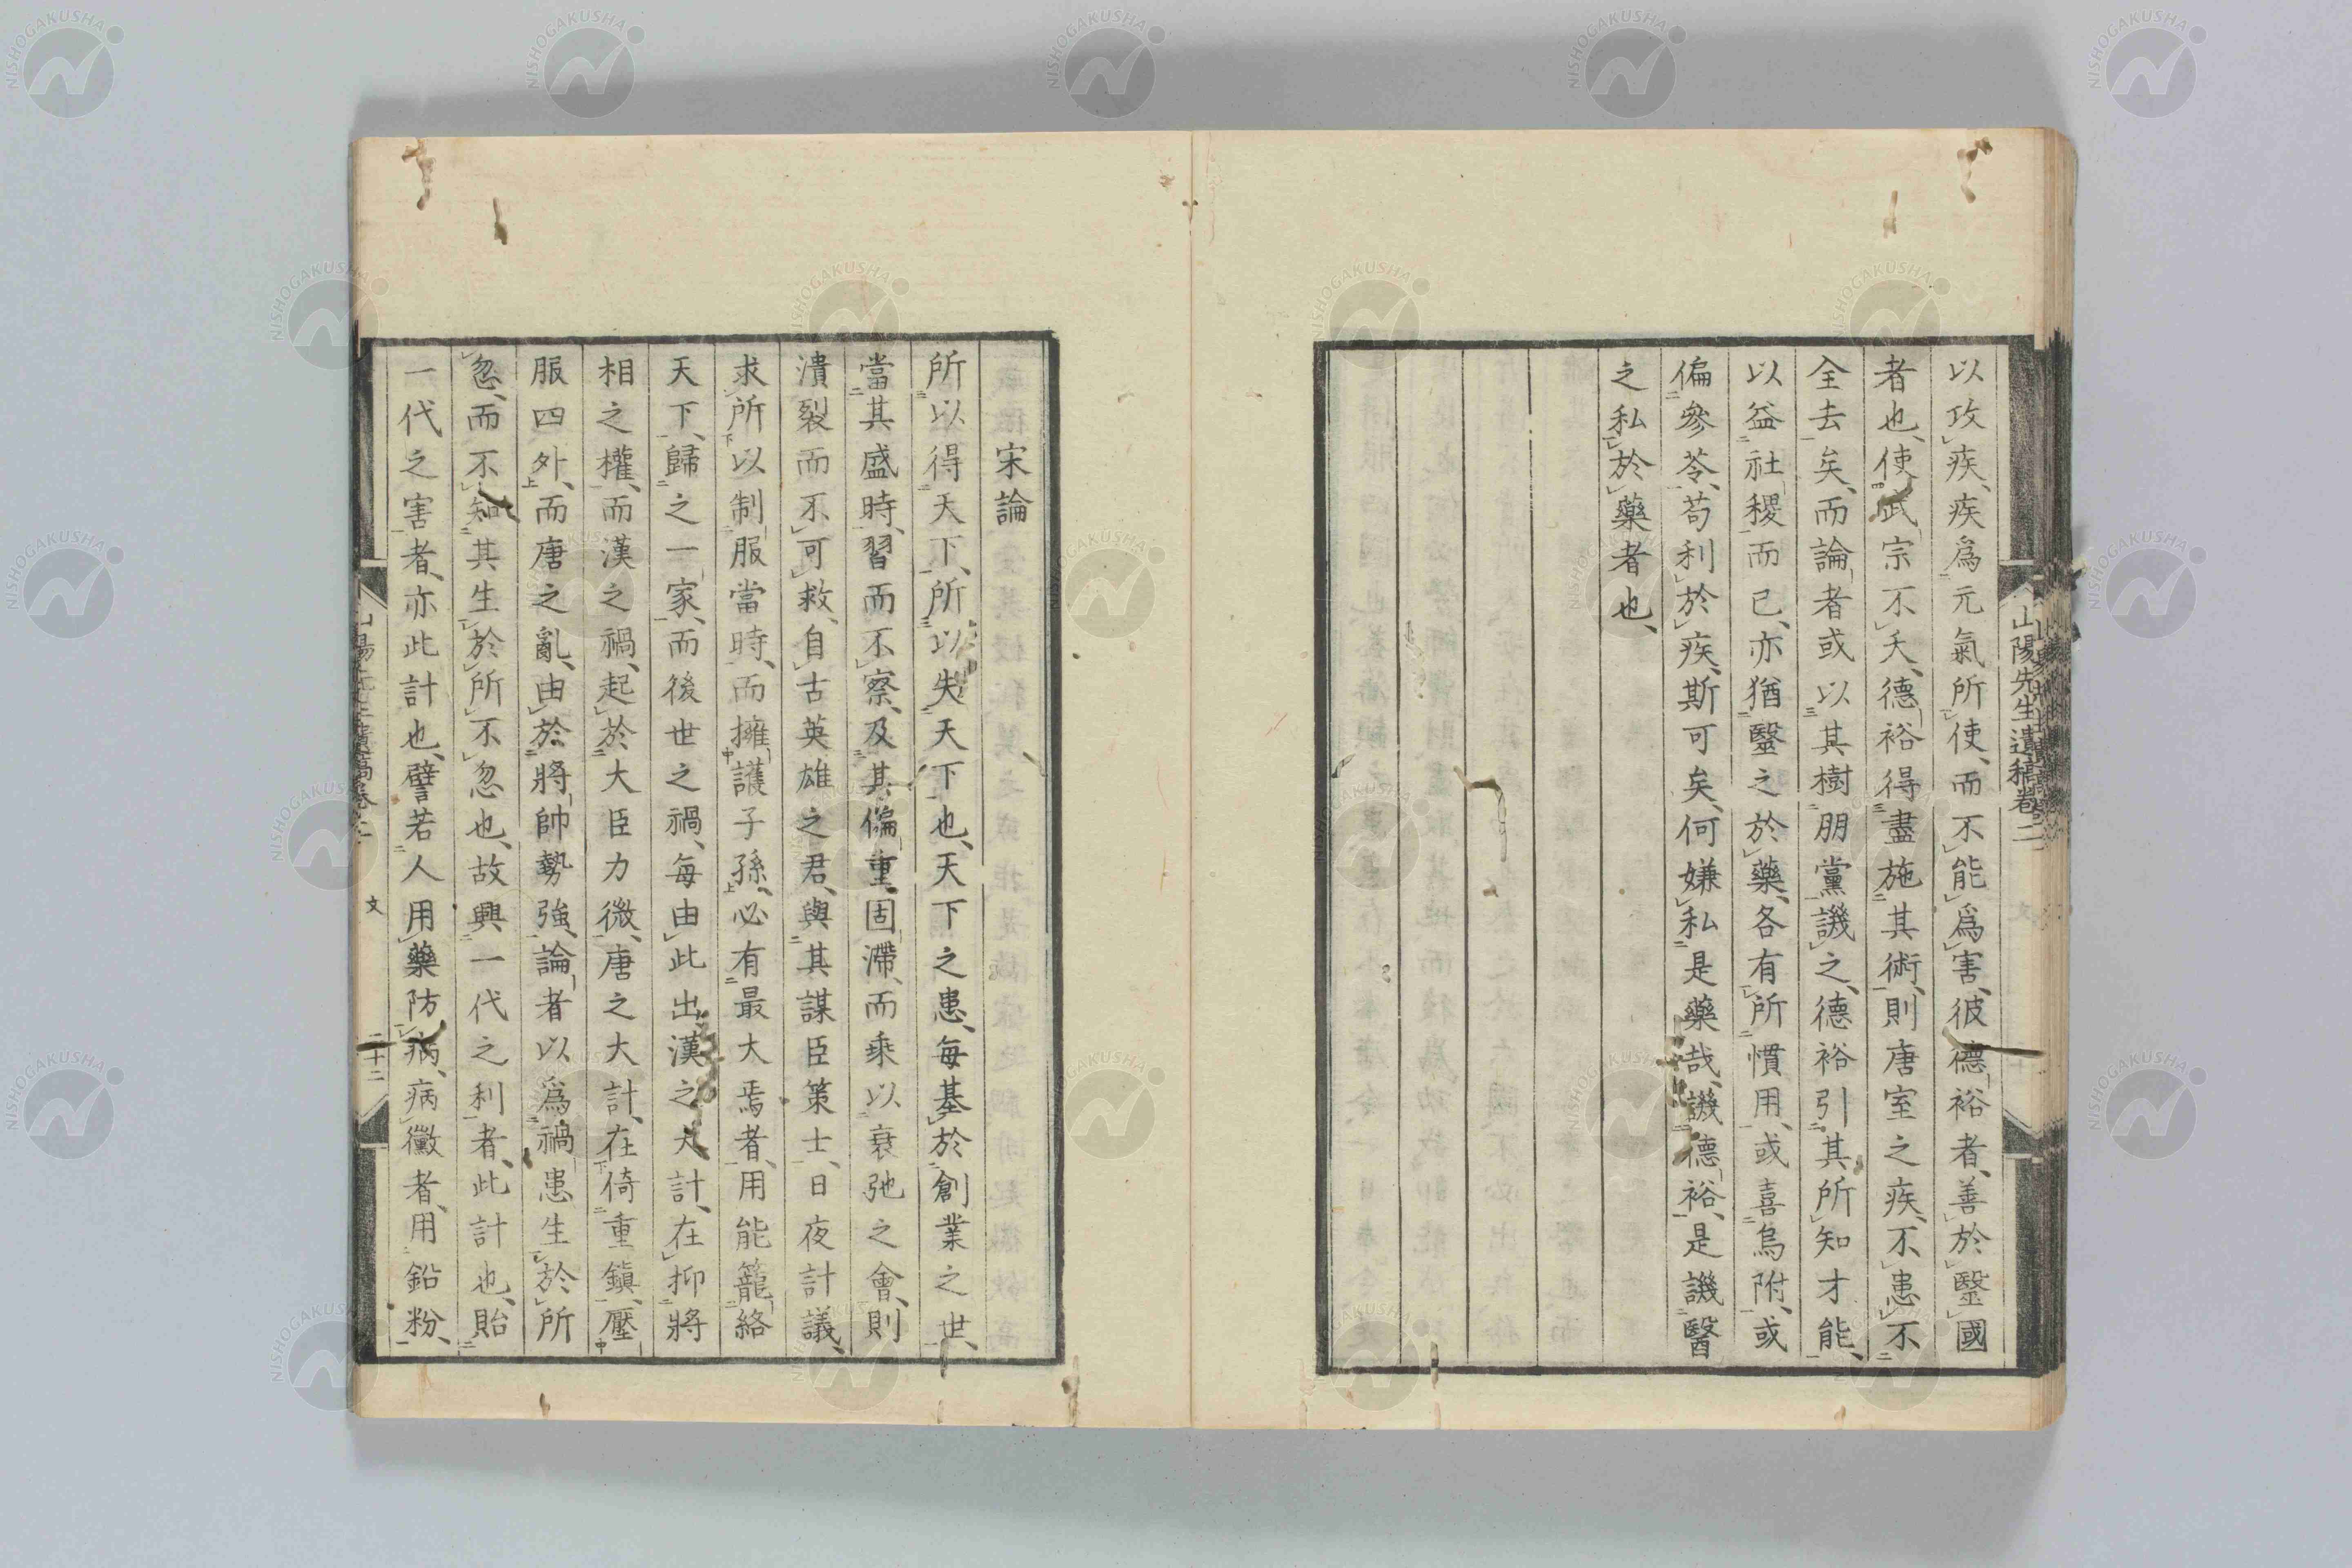 以攻疾、疾爲元氣所使、而不能爲害、彼德裕者、善於醫國
者也、使武宗不夭、德裕得盡施其術、則唐室之疾、不患不
全去矣、而論者或以其樹朋黨譏之、德裕引其所知才能、
以益社稷而已、亦猶醫之於藥、各有所慣用、或喜烏附、或
偏參苓、苟利於疾、斯可矣、何嫌私是藥哉、譏德裕、是譏醫
之私於藥者也、
山陽先生遺稿卷二
宋論
所以得天下、所以失天下也、天下之患、每基於創業之世、
當其盛時、習而不察、及其偏重固滯、而乘以衰弛之會、則
潰裂而不可救、自古英雄之君、與其謀臣策士、日夜計議、
求所以制服當時、而擁護子孫、必有最大焉者、用能籠絡
天下、歸之一家、而後世之禍、每由此出、漢之大計、在抑將
相之權、而漢之禍、起於大臣力微、唐之大計、在倚重鎭、壓
服四外、而唐之亂、由於將帥勢強、論者以爲禍患生於所
忽、而不知其生於所不忽也、故興一代之利者、此計也、貽
一代之害者、亦此計也、譬若人用藥防病、病黴者、用鉛粉、
文
二十二
NISHOGAKUSHA